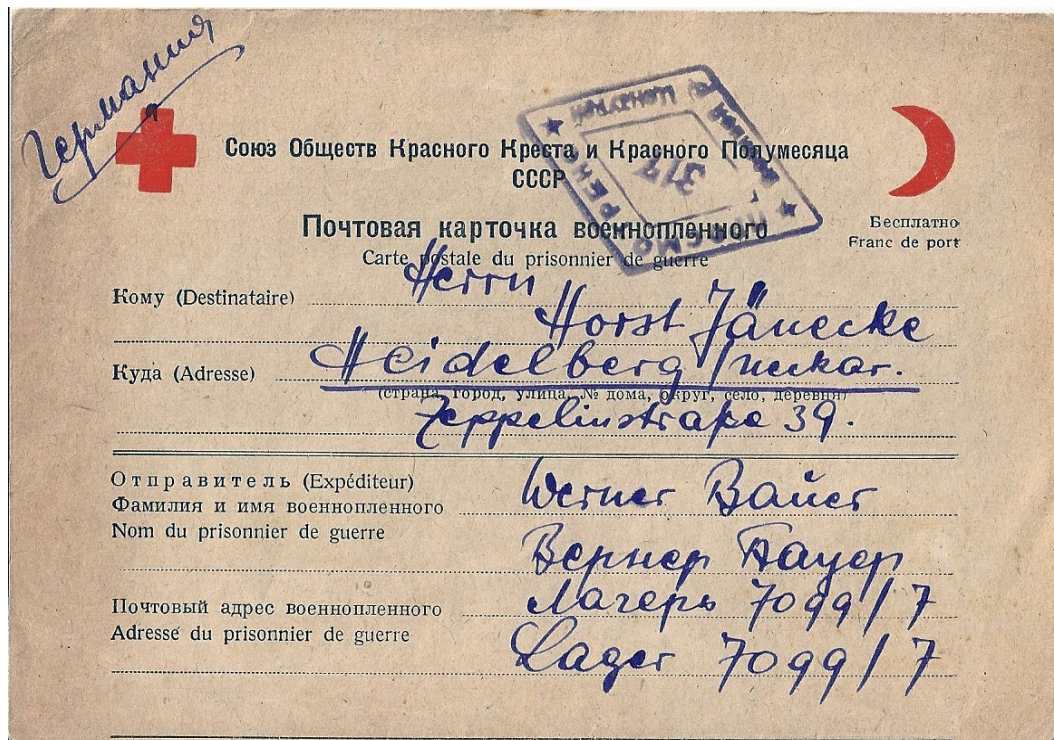 Германия
Союз Обществ Красного Креста и Красного Полумесяца
СССР
ПРОСМОТРЕНО
Военной Цензурой
317
Почтовая карточка военнопленного
Carte postale du prisonnier de guerre
Бесплатно
Franc de port
Кому (Destinataire) Herrn
Horst Jänecke
Куда (Adresse) Heidelberg/Neckar.
(страна, город, улица, № дома, округ, село, деревня)
Zeppelinstraße 39.
Отправитель (Expéditeur)
Фамилия и имя военнопленного Werner Bauer
Nom du prisonnier de guerre
Вернер Бауер
Почтовый адрес военнопленного Лагерь 7099/7
Adresse du prisonnier de guerre
Lager 7099/7